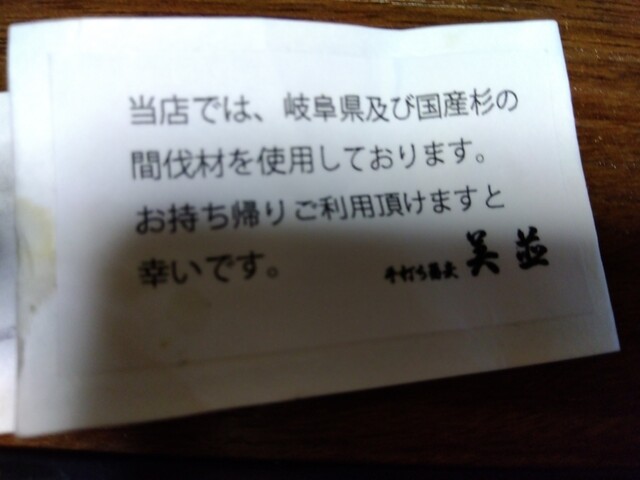 当店では、岐阜県及び国産杉の
間伐材を使用しております。
お持ち帰りご利用頂けますと
幸いです。 手打ち蕎麦 美並